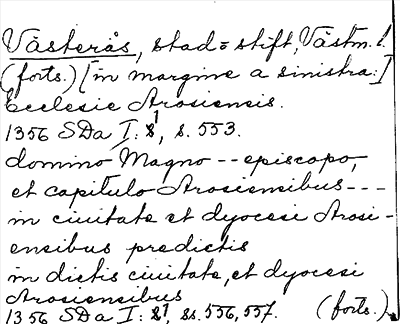 Västerås, stad o stift, Västm. l.
(forts.) [in margine a sinistra:]
Ecclesie Arosiensis.
1356 SDa I: 81, s. 553.
domino Magno -- episcopo,
et capitulo Arosiensibus ---
in ciuitate et dyocesi Arosi-
ensibus predictis
in dictis ciuitate, et dyocesi
Arosiensibus
1356 SDa I: 81, ss. 556, 557. (forts.)